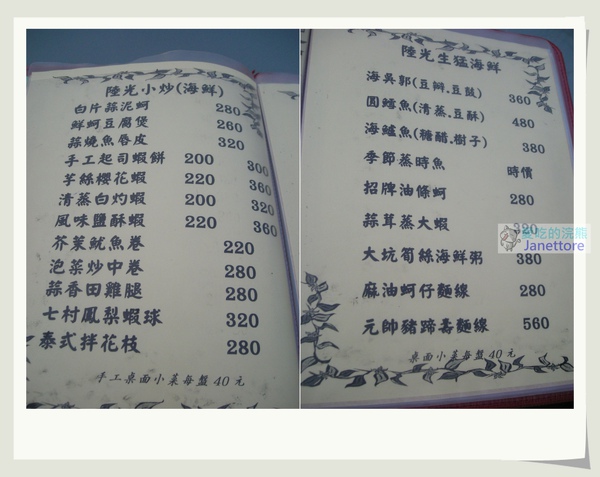 陸光小炒(海鮮)
白片蒜泥蚵 280
鮮蚵豆腐煲 260
蒜燒魚唇皮 320
手工起司蝦餅 200 300
芋絲櫻花蝦 220 360
清蒸白灼蝦 200 320
風味鹽酥蝦 220 360
芥茉魷魚卷 220
泡菜炒中卷 280
蒜香田雞腿 280
七村鳳梨蝦球 320
泰式拌花枝 280
手工桌面小菜每盤40元
陸光生猛海鮮
海吳郭(豆瓣.豆豉) 360
圓鱈魚(清蒸.豆酥) 480
海鱸魚(糖醋.樹子) 380
季節蒸時魚 時價
招牌油條蚵 280
蒜茸蒸大蝦 320
大坑筍絲海鮮粥 380
麻油蚵仔麵線 280
元帥豬蹄壽麵線 560
桌面小菜每盤40元
愛吃的浣熊
Janettore